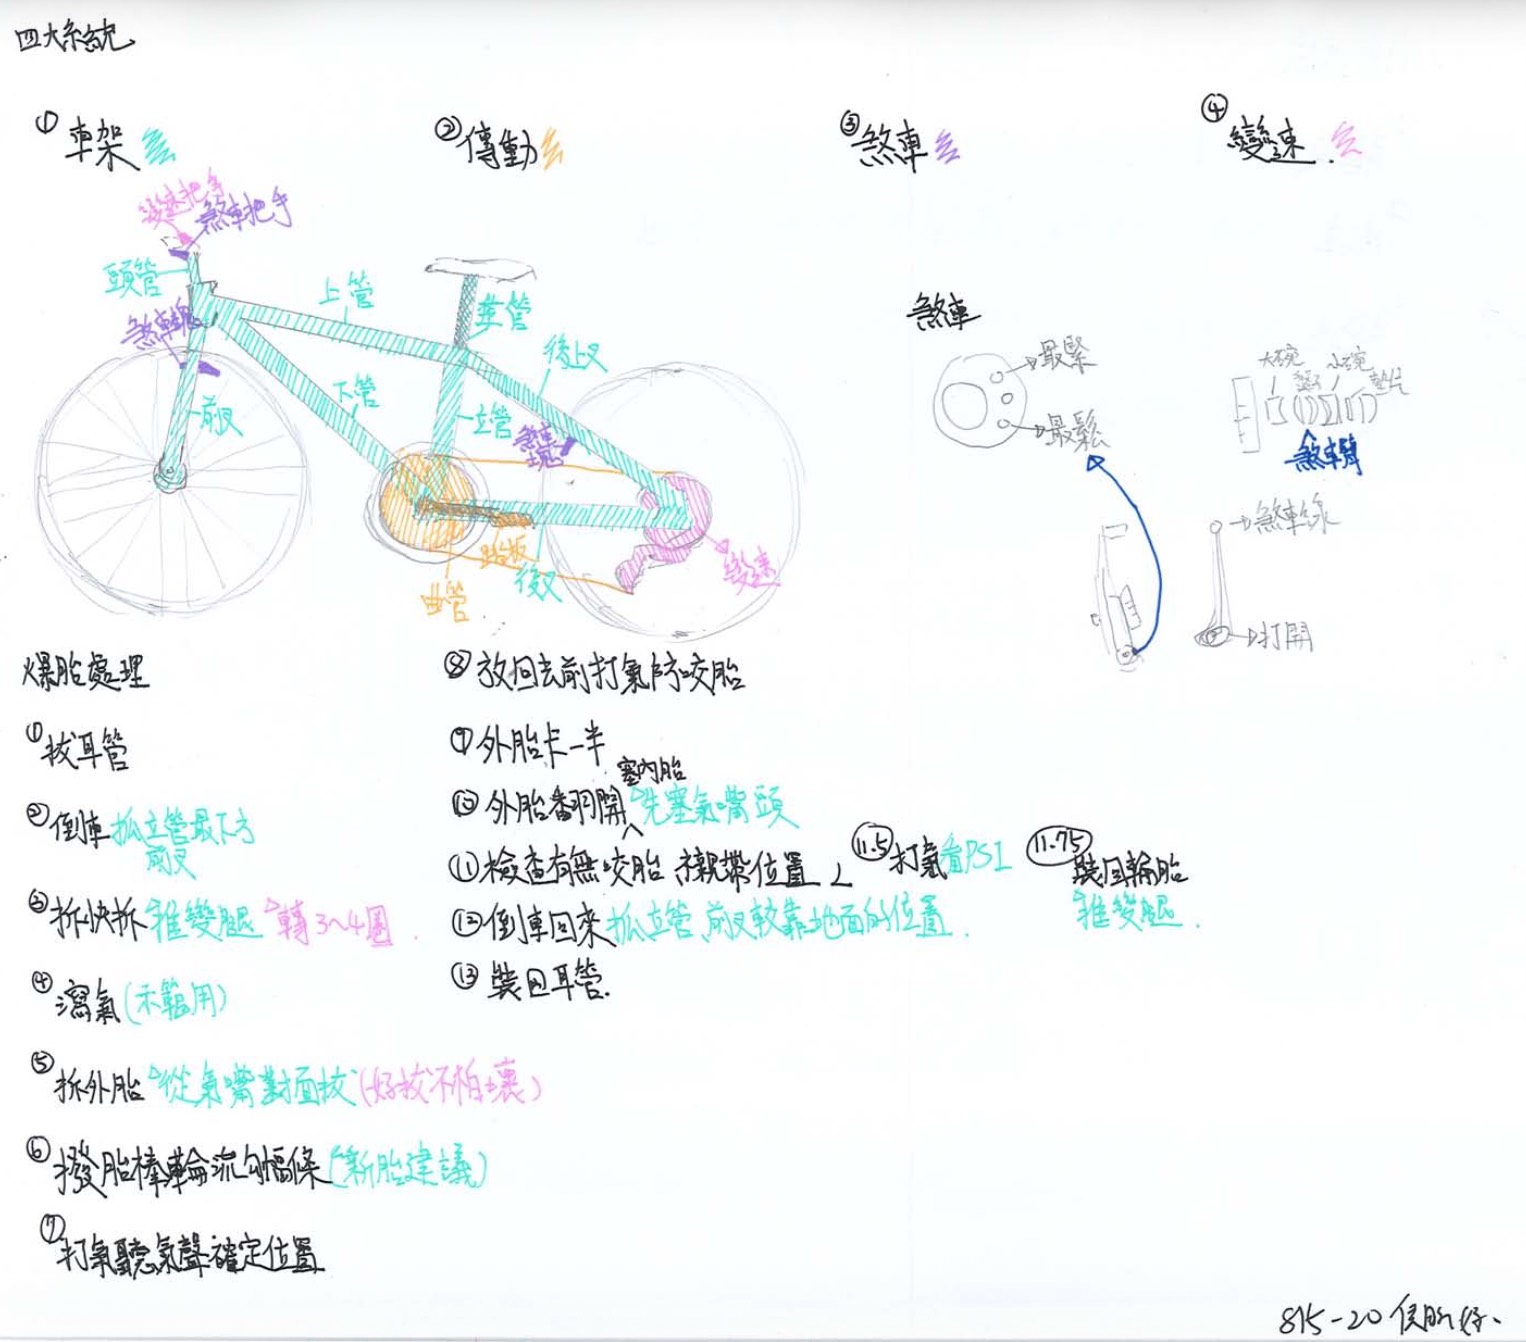 四大系統
① 車架
② 傳動
③ 煞車
④ 變速.
變速把手
煞車把手
頭管
上管
煞車塊
前叉
下管
立管
後上叉
煞車塊
踏板
曲管
後叉
變速
煞車
最緊
最鬆
大碗
小碗
墊片
煞車臂
煞車線
打開
爆胎處理
① 拔耳管
② 倒車 抓立管最下方
前叉
③ 拆快拆 椎雙腿 轉3~4圈.
④ 瀉氣(示範用)
⑤ 拆外胎 從氣嘴對面拔(好拔不怕壞)
⑥ 撥胎棒輪流勾幅條(新胎建議)
⑦ 打氣聽氣聲確定位置
⑧ 放回去前打氣防咬胎
⑨ 外胎卡一半
塞內胎
⑩ 外胎翻開 先塞氣嘴頭
⑪ 檢查有無咬胎 襯帶位置
11.5 打氣 看PSI
11.75 裝回輪胎
椎雙腿.
⑫ 倒車回來 抓立管 前叉較靠地面的位置.
⑬ 裝回耳管.
815-20